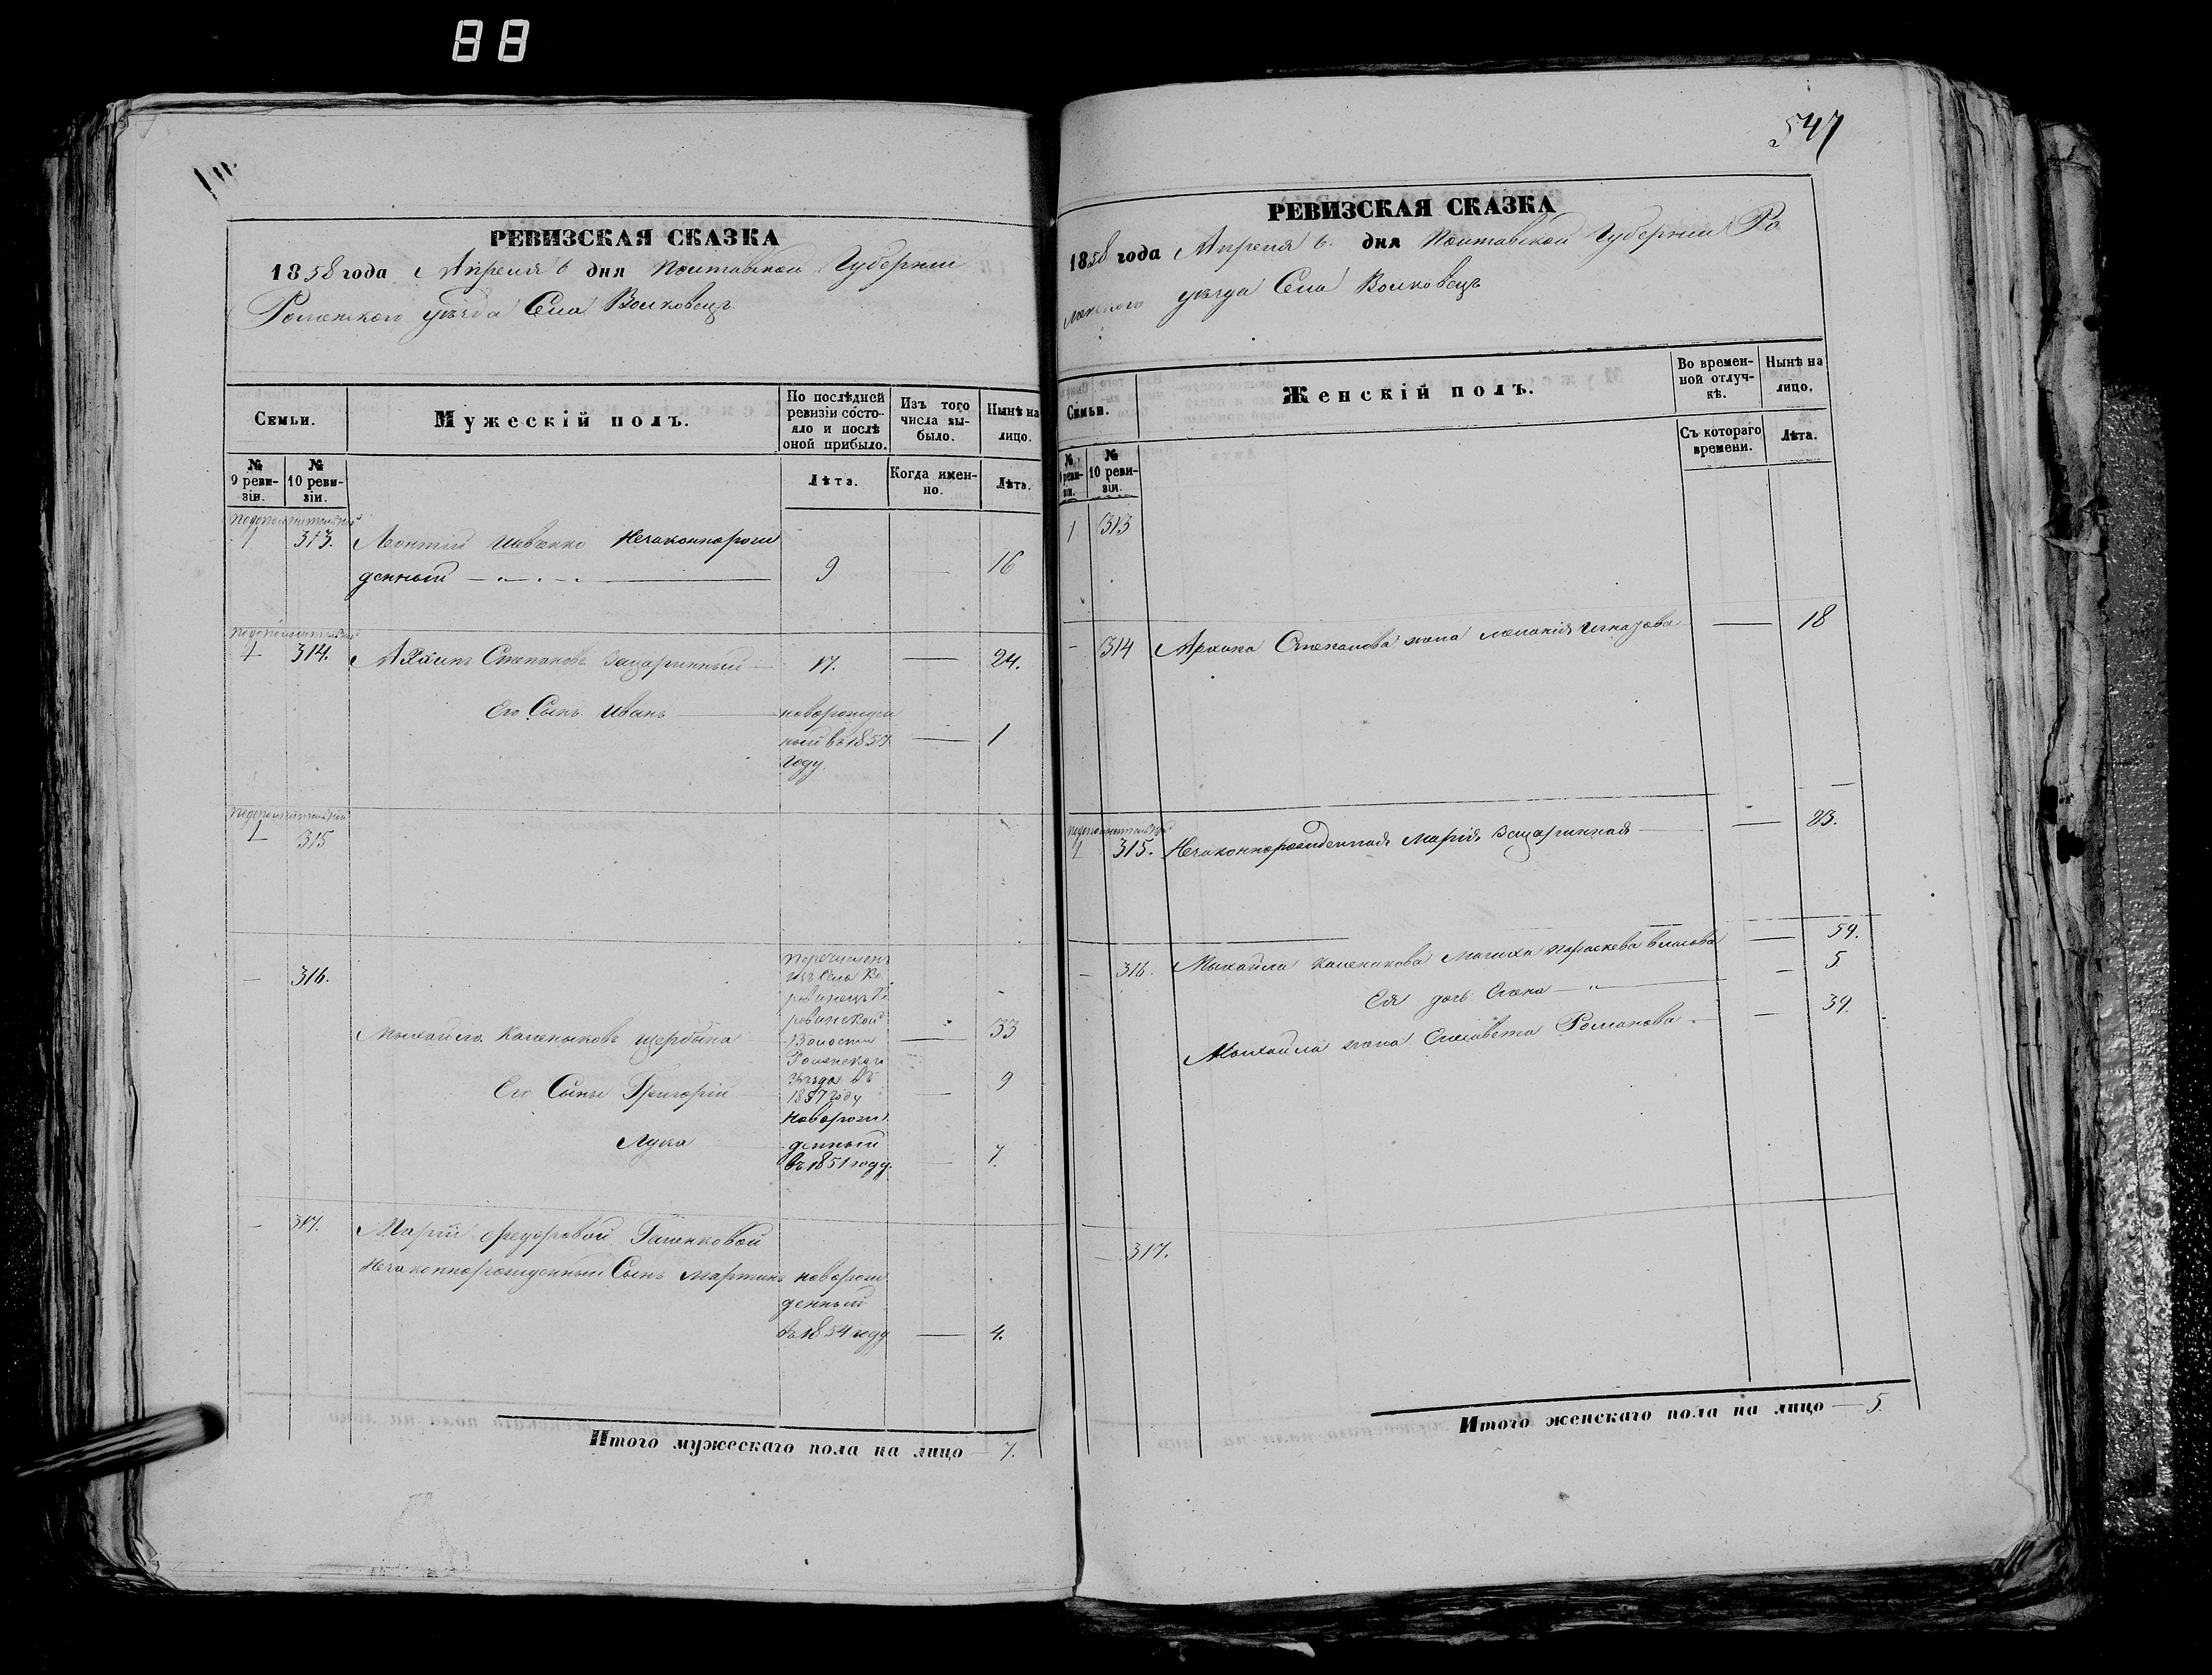 88
547
РЕВИЗСКАЯ СКАЗКА
1858 года Апреля 6 дня Полтавской Губернии
Роменского уѣзда Села Волковецъ
Семьи.
Мужескій полъ.
По послѣдней ревизіи состояло и послѣ оной прибыло.
Изъ того числа выбыло.
Нынѣ на лицо.
№ 9 ревизіи.
№ 10 ревизіи.
Лѣта.
Когда именно.
Лѣта.
1 313. Леонтій Шевченко Незаконнорож
денный 9 — 16
1 314. Степановъ Защаринный 17. — 24.
Его Сынъ Иванъ — новорожден
ный въ 1857 — 1
году.
1 315
— 316.
перечисленъ
изъ села Ко
ровинецъ Ко
ровинской
Михайло Калениковъ Щербина Волости — 33
Роменскаго
уѣзда въ
Его Сыны Григорій 1857 году — 9
Новорож
Лука денный
въ 1851 году — 7.
— 317. Маріи Федоровой Галенковой
Незаконнорожденный Сынъ Мартинъ новорож
денный
въ 1854 году — 4.
Итого мужескаго пола на лицо — 7.
РЕВИЗСКАЯ СКАЗКА
1858 года Апреля 6. дня Полтавской Губерніи Ро
менского уѣзда Села Волковецъ
Семьи.
Женскій полъ.
Во временной отлучкѣ.
Нынѣ на лицо.
№ 9 ревизіи.
№ 10 ревизіи.
Съ котораго времени.
Лѣта.
1 313
— 314 Степанова жена Меланія Игнатова — 18
1 315. Незаконнорожденная Марія Защаринная — 23.
— 316. Михайла Каленикова Мачиха Параскева Власова — 59.
Ея дочь — 5
Михайла жена Елисавета Романова — 39.
— 317.
Итого женскаго пола на лицо — 5.